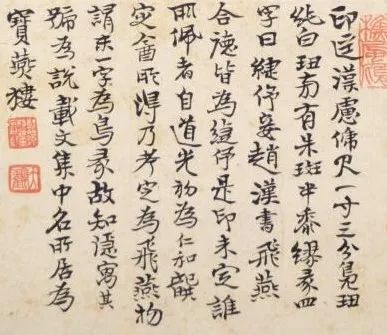 印徑漢慮俿尺一寸三分鳧鈕
純白鈕旁有朱斑半黍繆篆四
字曰緁伃妾趙漢書飛燕
合德皆為緁伃是印未定誰
所佩者自道光初為仁和龔
定盦所得乃考定為飛燕物
謂末一字為鳥篆故知隱寓其
號為說載文集中名所居為
寶燕樓